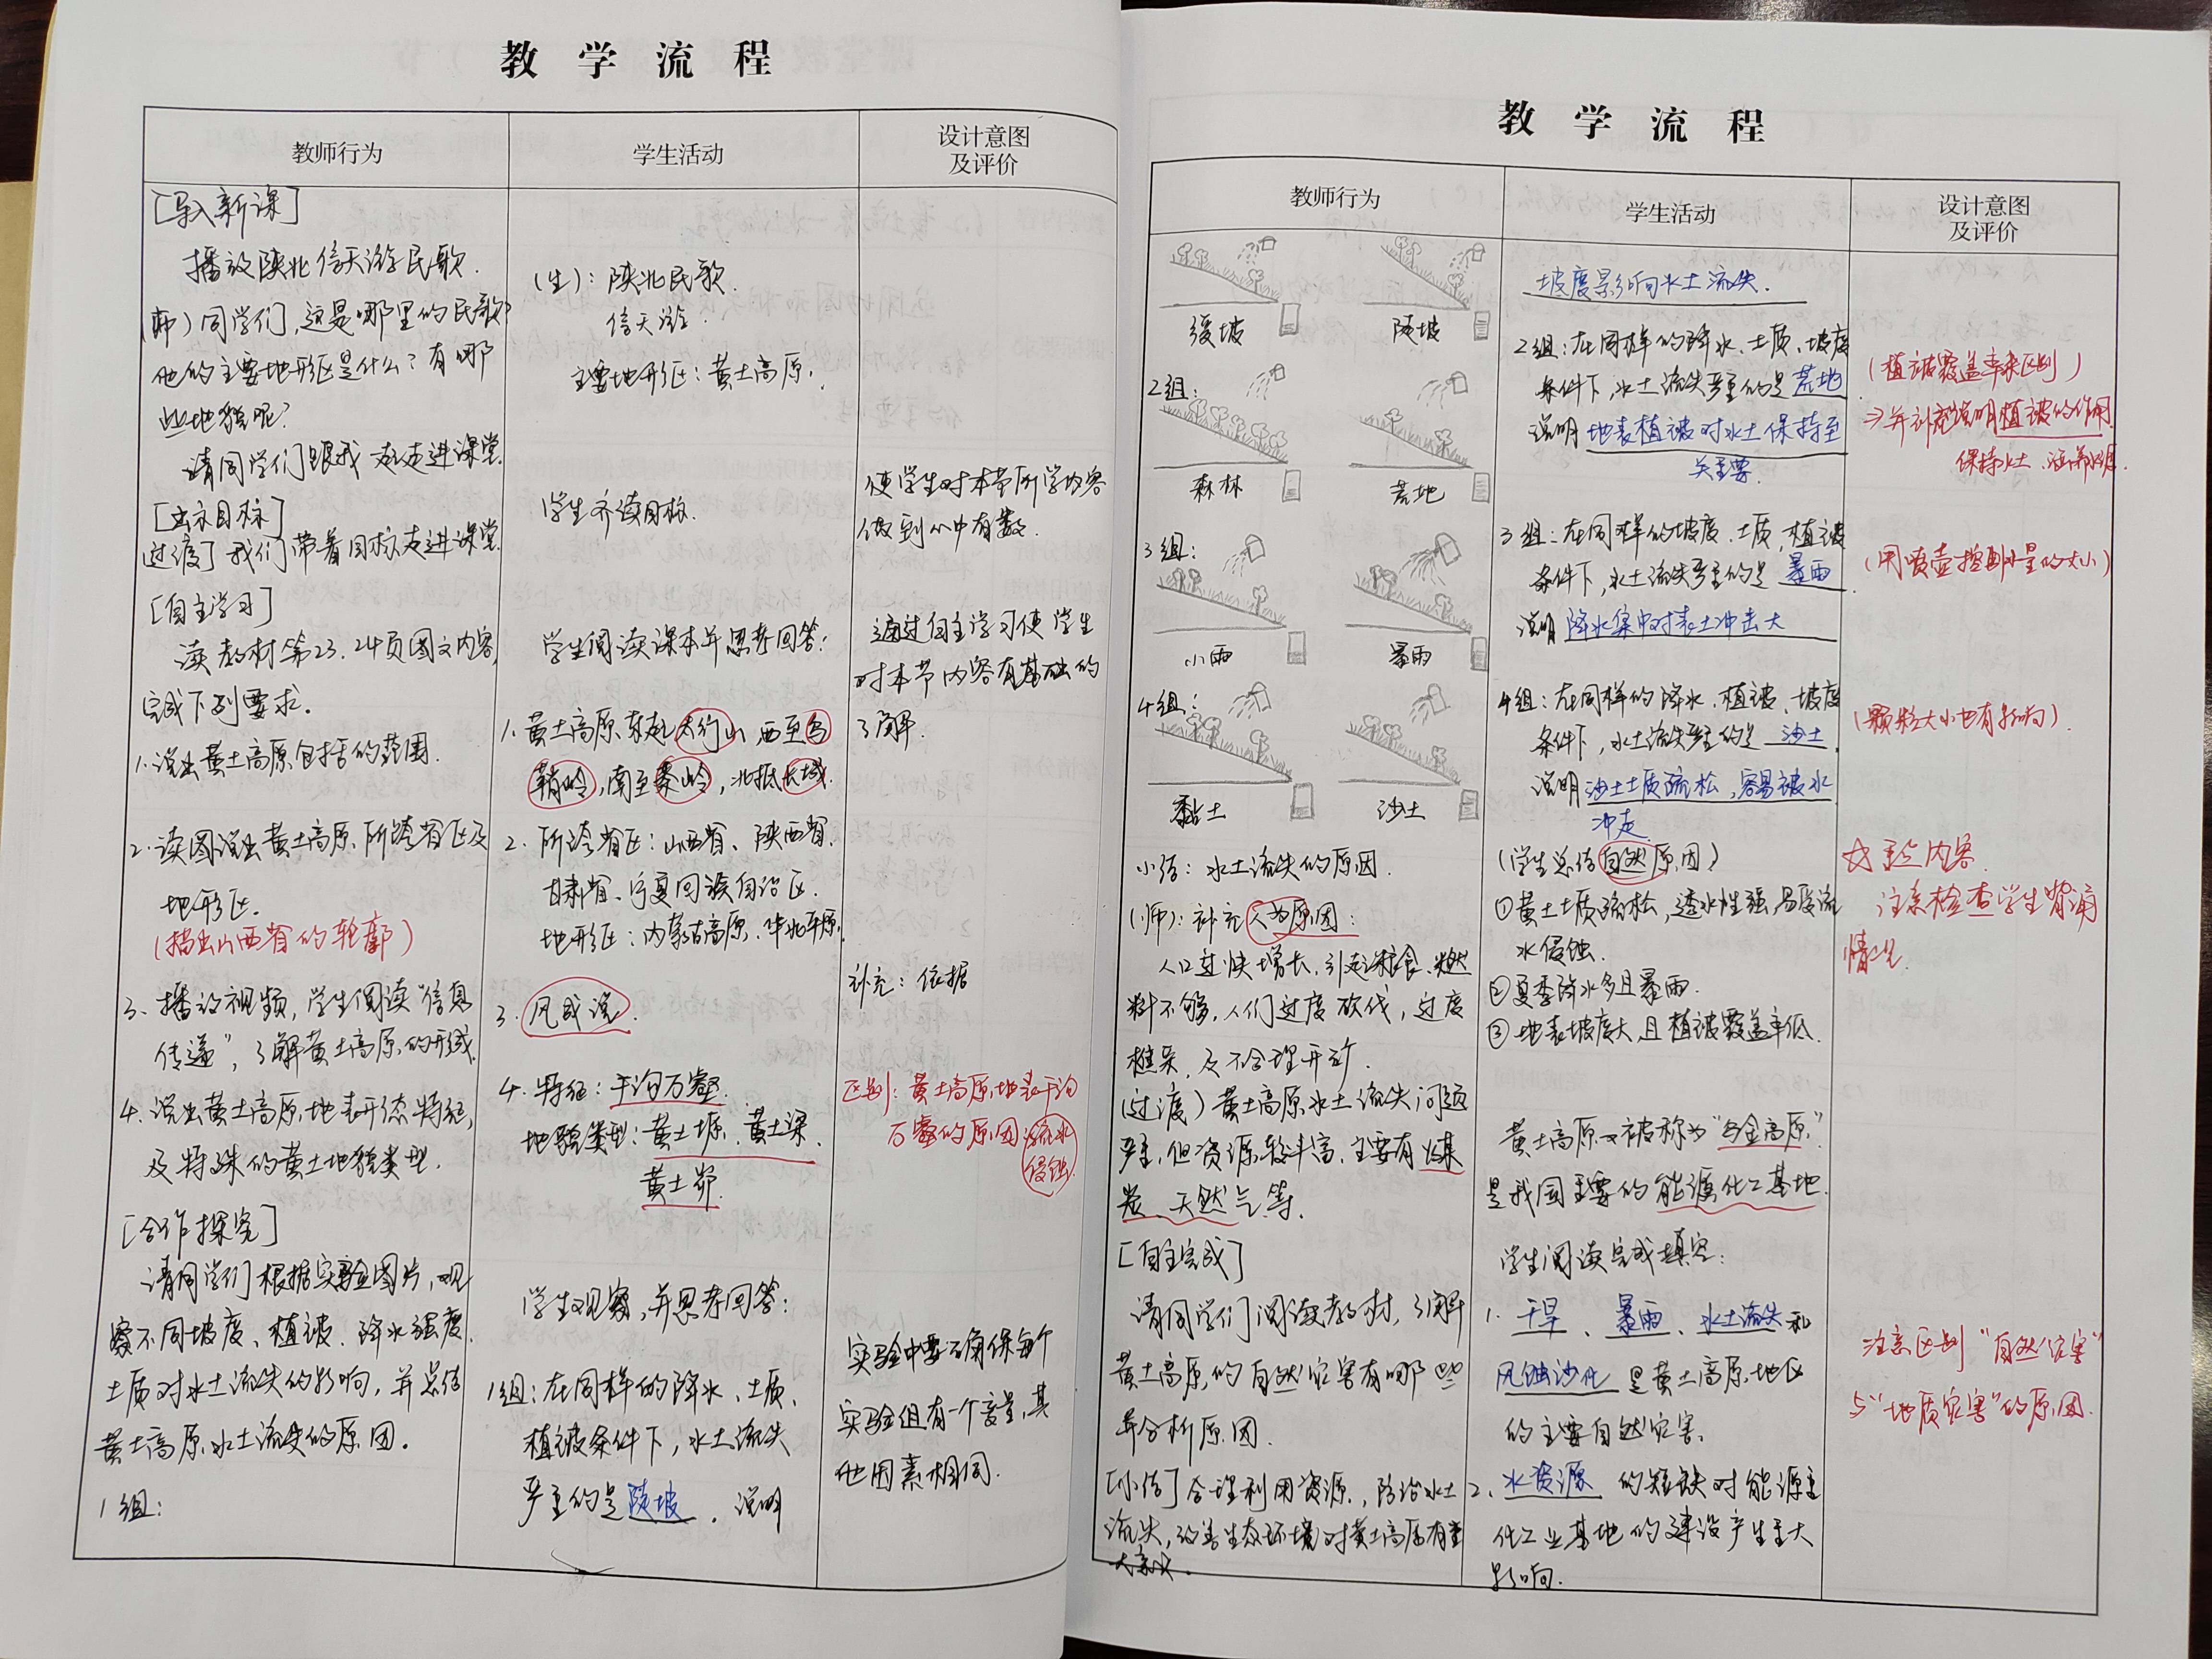 教学流程
教师行为
[导入新课]
播放陕北信天游民歌.
(师)同学们,这是哪里的民歌?
他的主要地形区是什么?有哪
些地貌呢?
请同学们跟我走进课堂.
[出示目标]
过渡] 我们带着目标走进课堂.
[自主学习]
读教材第23.24页图文内容,
完成下列要求.
1.说出黄土高原包括的范围.
2.读图说出黄土高原所跨省区及
地形区.
(描出山西省的轮廓)
3、播放视频,学生阅读“信息
传递”,了解黄土高原的形成.
4.说出黄土高原地表形态特征,
及特殊的黄土地貌类型.
[合作探究]
请同学们根据实验图片,观
察不同坡度、植被.降水强度.
土质对水土流失的影响,并总结
黄土高原水土流失的原因.
1组:
学生活动
(生):陕北民歌.
信天游.
主要地形区:黄土高原.
学生齐读目标.
学生阅读课本并思考回答:
1.黄土高原东起太行山,西至乌
鞘岭,南至秦岭,北抵长城.
2.所跨省区:山西省、陕西省.
甘肃省、宁夏回族自治区.
地形区:内蒙古高原、华北平原.
3.风成说.
4.特征:千沟万壑.
地貌类型:黄土塬、黄土梁.
黄土峁.
学生观察,并思考回答:
1组:在同样的降水、土质、
植被条件下,水土流失
严重的是陡坡.说明
设计意图
及评价
使学生对本节所学内容
做到心中有数.
通过自主学习使学生
对本节内容有基础的
了解.
补充:依据
区别:黄土高原地表千沟
万壑的原因流水
侵蚀.
实验中要确保每个
实验组有一个变量,其
他因素相同.
教学流程
教师行为
缓坡 陡坡
2组:
森林 荒地
3组:
小雨 暴雨
4组:
黏土 沙土
小结:水土流失的原因.
(师):补充人为原因:
人口过快增长,引起粮食、燃
料不够,人们过度砍伐,过度
樵采,及不合理开矿.
(过渡)黄土高原水土流失问题
严重,但资源较丰富,主要有煤
炭、天然气等.
[自主完成]
请同学们阅读教材,了解
黄土高原的自然灾害有哪些
并分析原因.
[小结]合理利用资源,防治水土
流失,改善生态环境对黄土高原有重
学生活动
坡度影响水土流失.
2组:在同样的降水、土质、坡度
条件下,水土流失严重的是荒地
说明地表植被对水土保持至
关重要.
3组:在同样的坡度、土质,植被
条件下,水土流失严重的是暴雨
说明降水集中对表土冲击大
4组:在同样的降水、植被、坡度
条件下,水土流失严重的是沙土.
说明沙土土质疏松,容易被水
冲走
(学生总结自然原因)
①黄土土质疏松,透水性强,易受流
水侵蚀.
②夏季降水多且暴雨.
③地表坡度大,且植被覆盖率低.
黄土高原又被称为“乌金高原”
是我国重要的能源化工基地.
学生阅读完成填空:
1.干旱、暴雨、水土流失和
风蚀沙化是黄土高原地区
的主要自然灾害.
2.水资源的短缺对能源重
化工业基地的建设产生重大
影响.
设计意图
及评价
(植被覆盖率来区别)
⇒并补充说明植被的作用
保持水土、涵养水源.
(用喷壶控制水量的大小)
(颗粒大小也有影响).
☆重点内容
注意检查学生背诵
情况.
注意区别“自然灾害”
与“地质灾害”的原因.